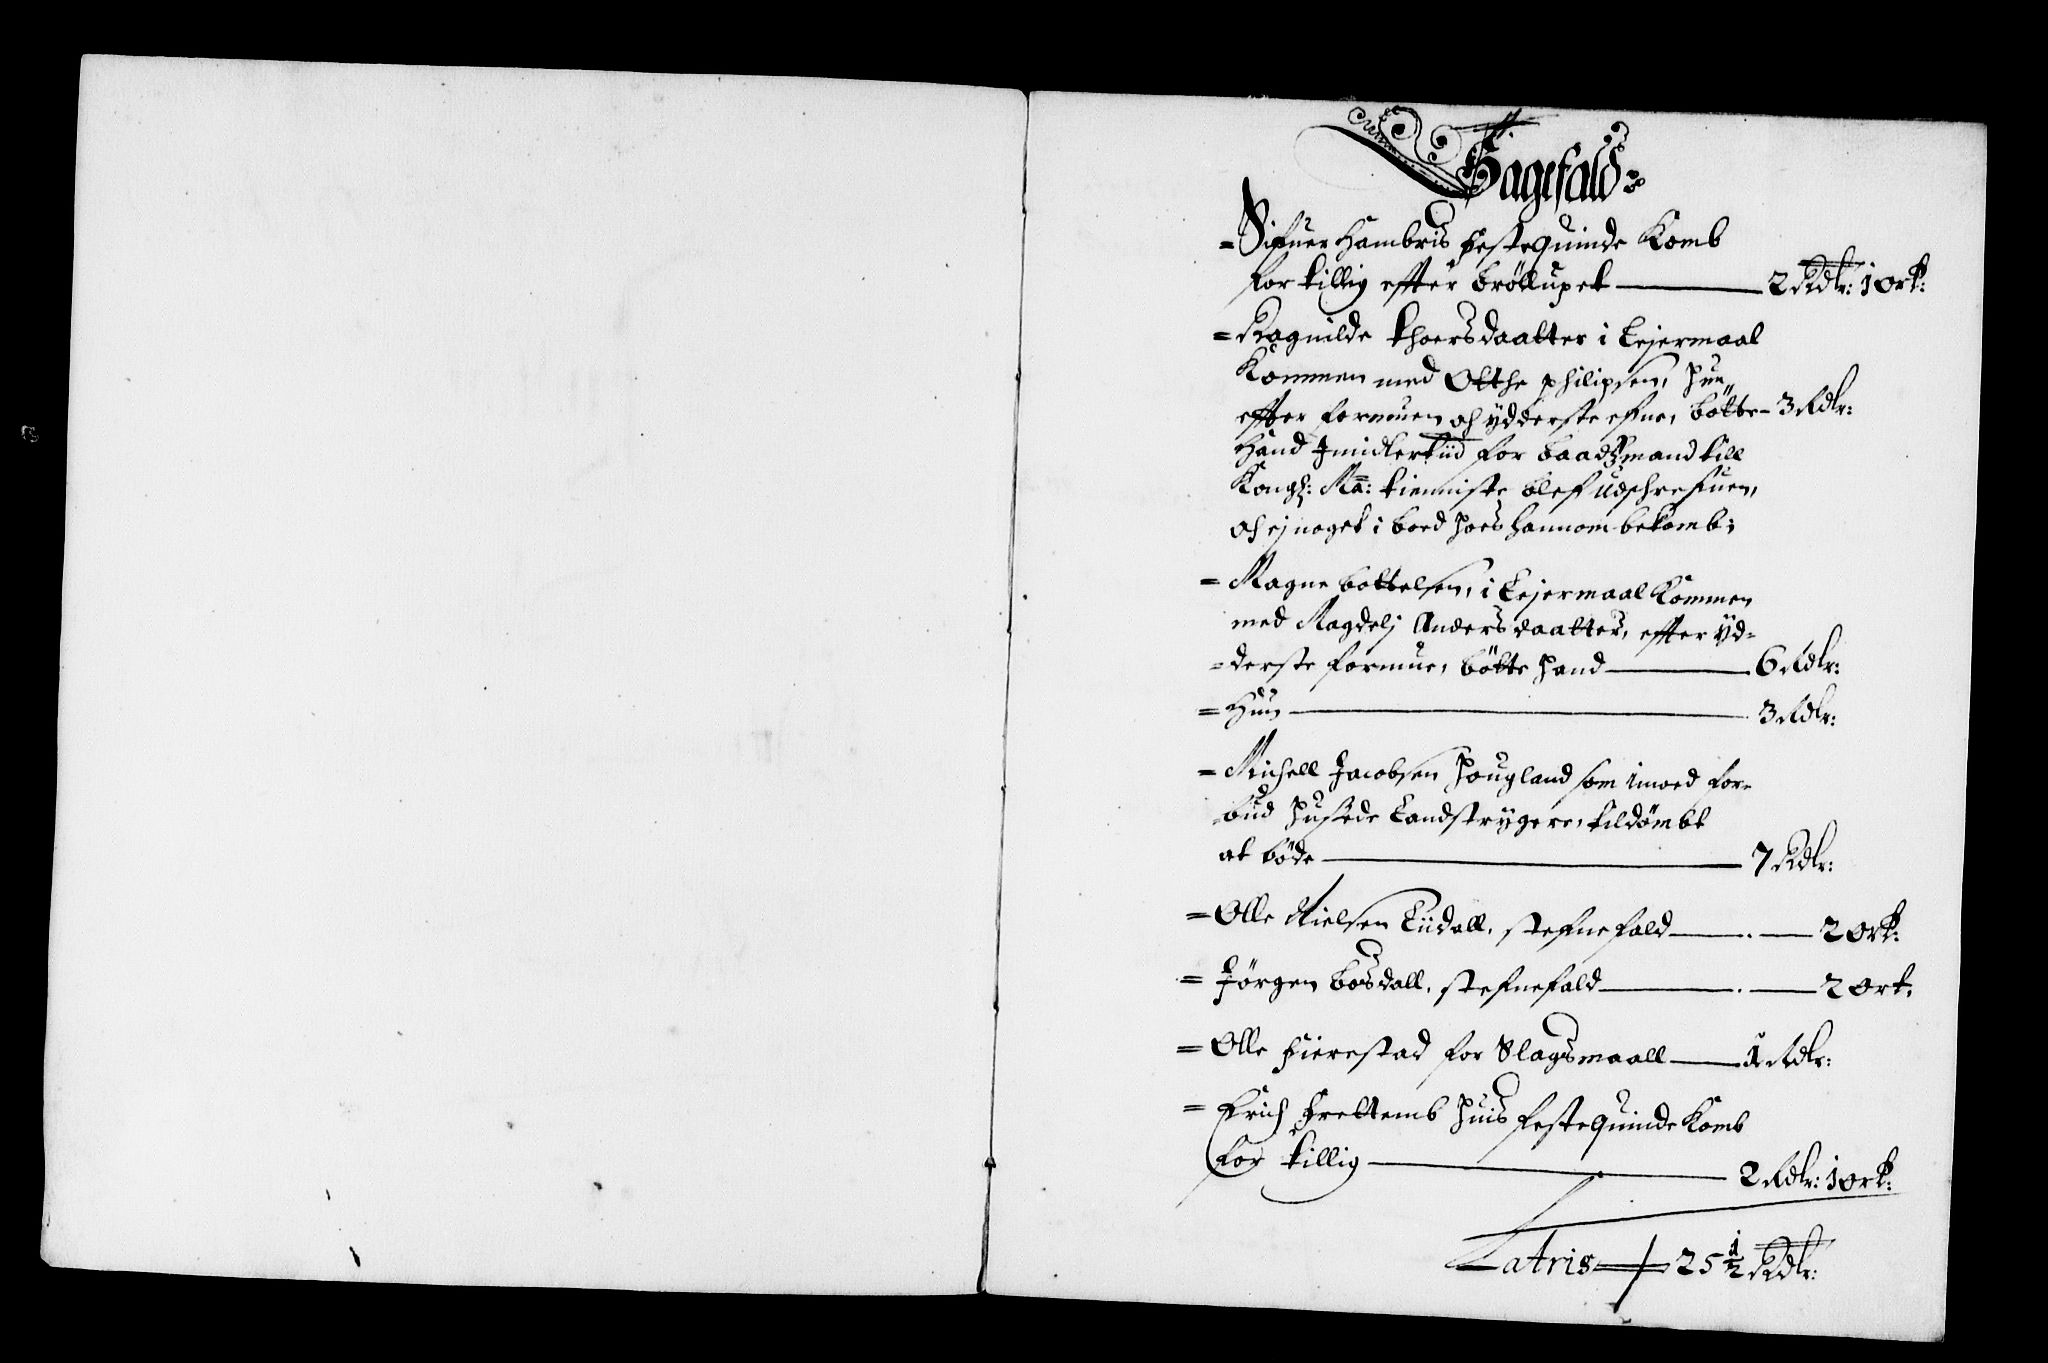 Sagefald
= Sifuer Hambris festequinde Komb
for tillig effter brölluped — 2 Rdlr: 1 Ort:
= Ragnilde Thoersdaatter i Lejermaal
Kommen med Otthe Philipsen, hun
effter formuen och ÿdderste efne, bötte – 3 Rdlr:
Hand Imidlertiid for baadsmand till
Kongs: Ma: tienniste blef udschrefuen,
och ej noget i boed hoes hannom bekomb;
= Magne bottelsen, i Lejermaal Kommen
med Magdelj Andersdaatter, effter ÿd=
=derste formue, bötte hand — 6 Rdlr:
= Hun — 3 Rdlr:
= Michell Jacobsen Hougland som imoed for=
bud husede Landstrÿgere, tildömbt
at böde — 7 Rdlr:
= Olle Nielsen Liidall, stefnefald — 2 Ort:
= Jörgen bosdall, stefnefald — 2 Ort:
= Olle fierestad for Slagsmaall — 1 Rdlr:
= Erich Frettemb huis festequinde Komb
for tillig — 2 Rdlr: 1 Ort:
Latris — 25 1/2 Rdlr: